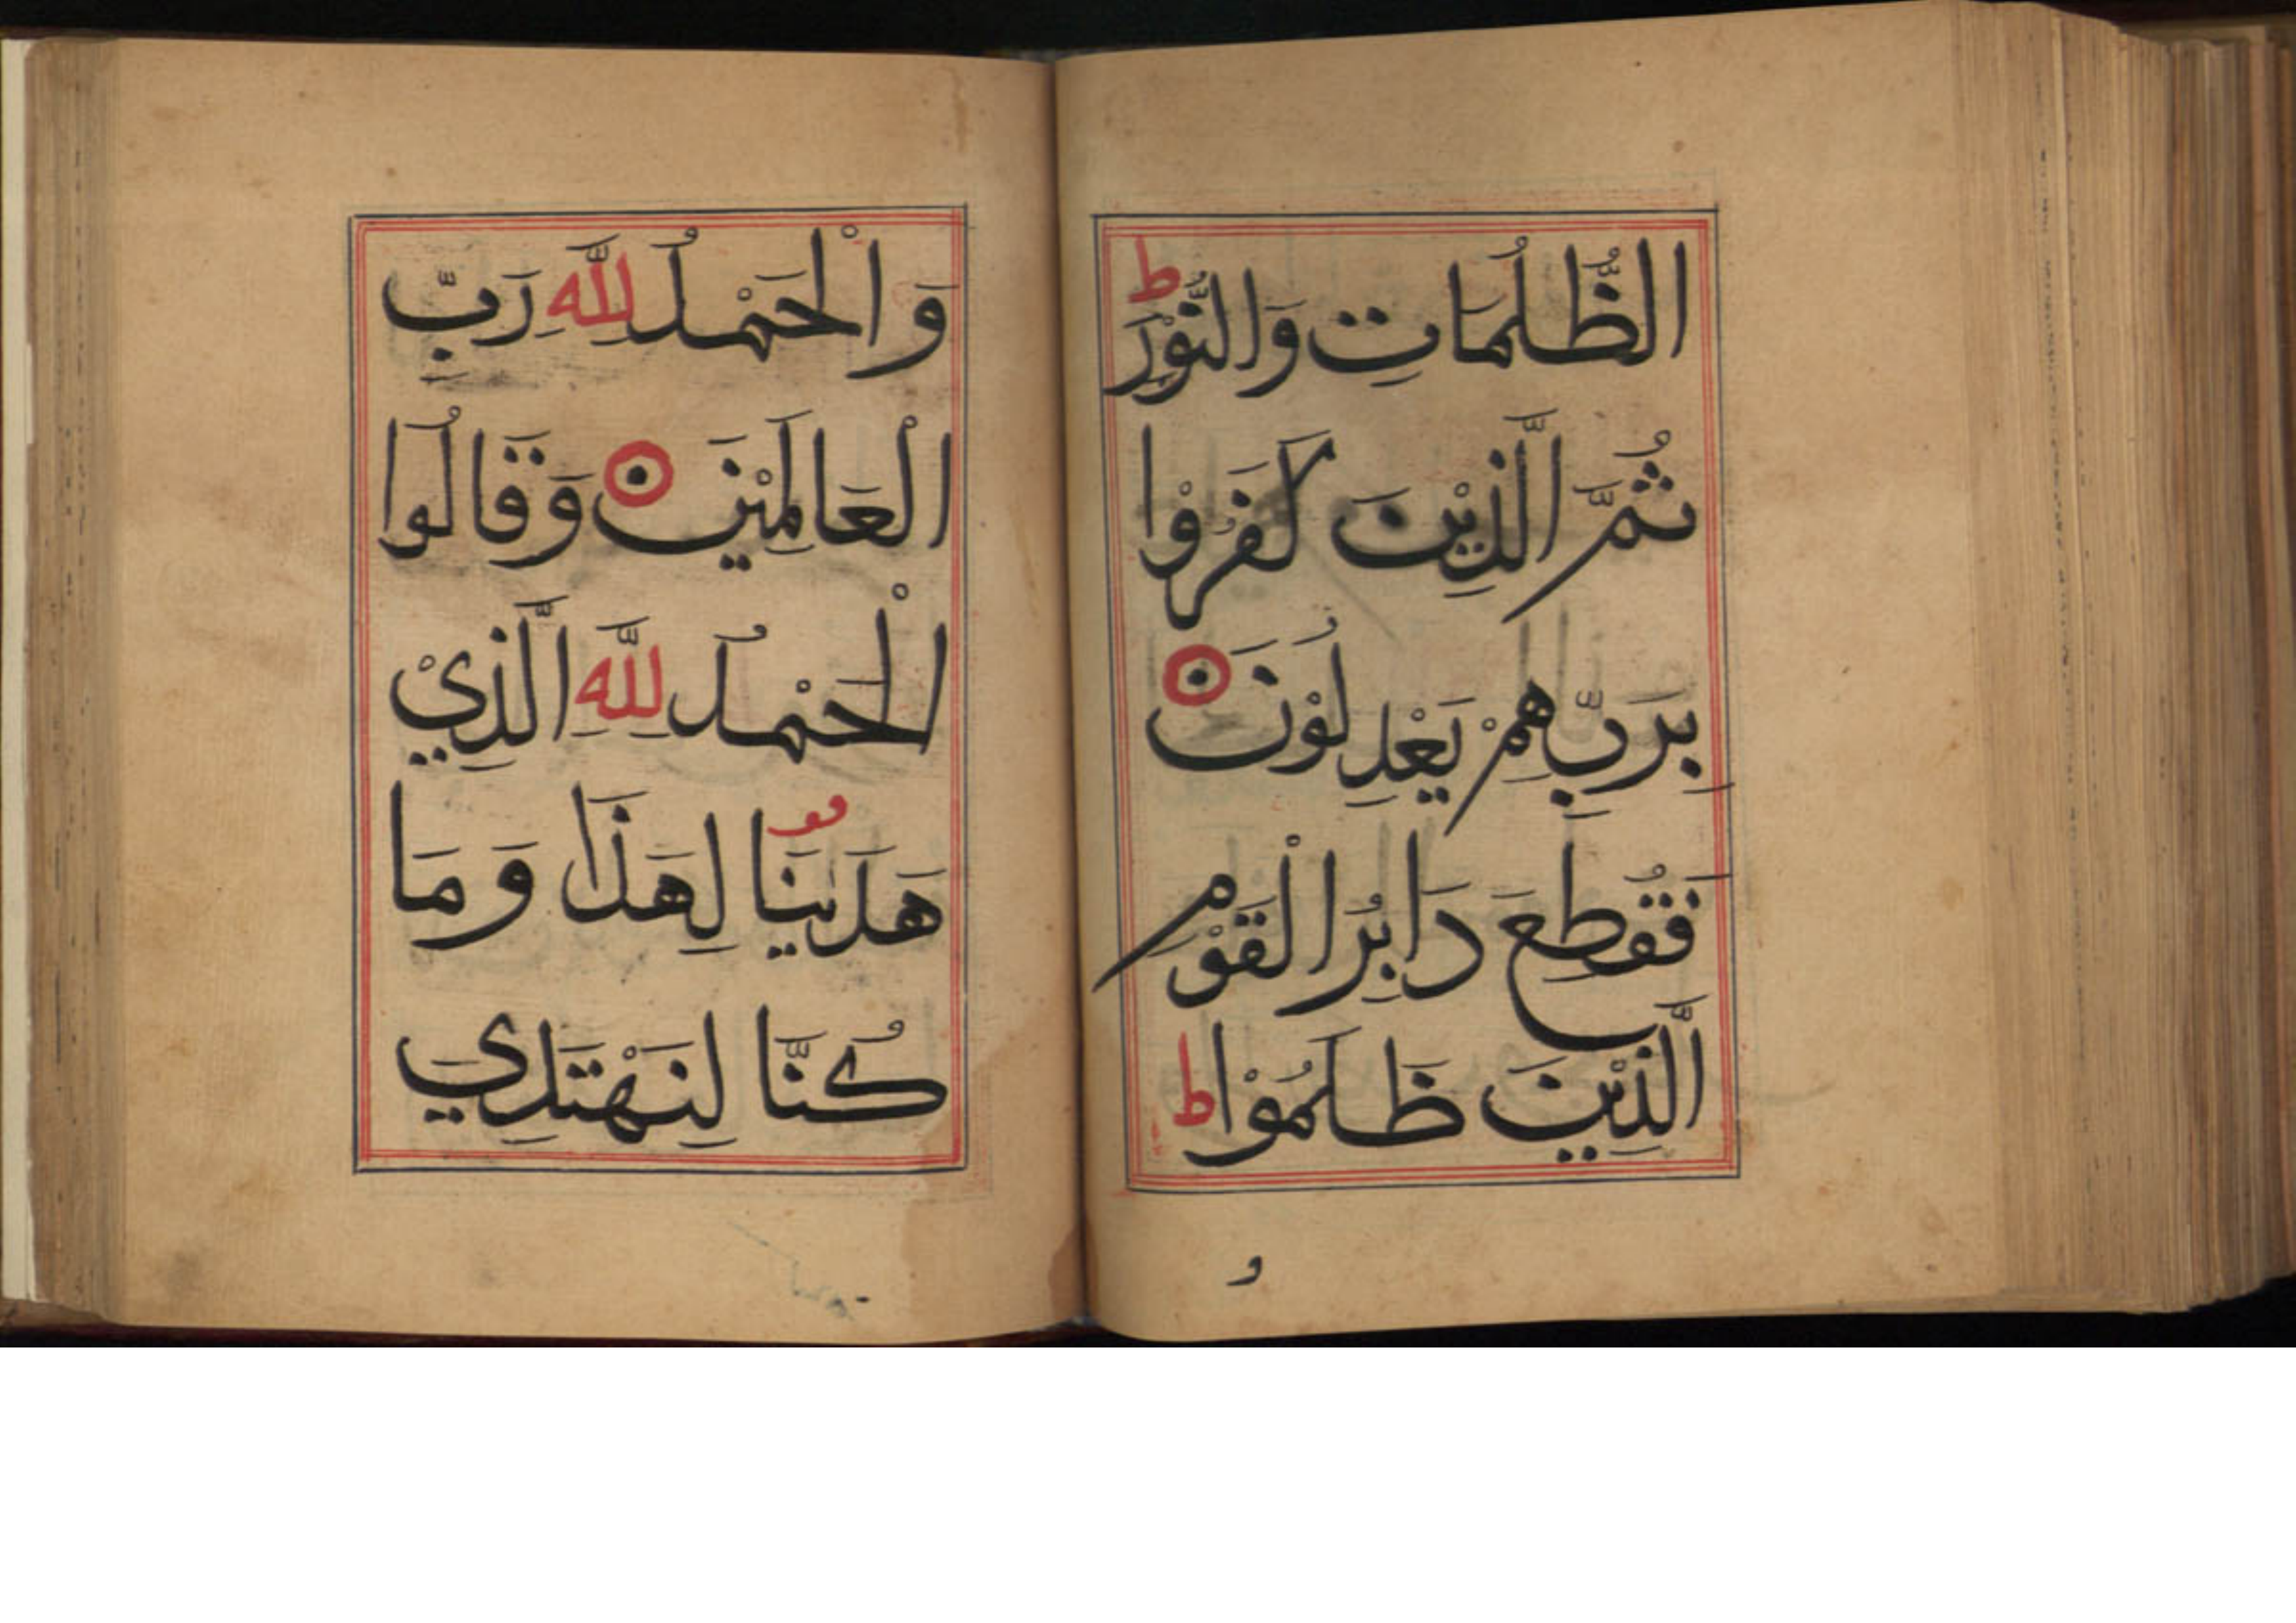 الظُّلُمَاتِ وَالنُّوْرَ ط
ثُمَّ الَّذِيْنَ كَفَرُوْا
بِرَبِّهِمْ يَعْدِلُوْنَ
فَقُطِعَ دَابِرُ الْقَوْمِ
الَّذِيْنَ ظَلَمُوْا ط
و
وَالْحَمْدُ لِلَّهِ رَبِّ
الْعَالَمِيْنَ وَقَالُوا
الْحَمْدُ لِلَّهِ الَّذِيْ
هَدَيٰنَا لِهَذَا وَمَا
كُنَّا لِنَهْتَدِيَ